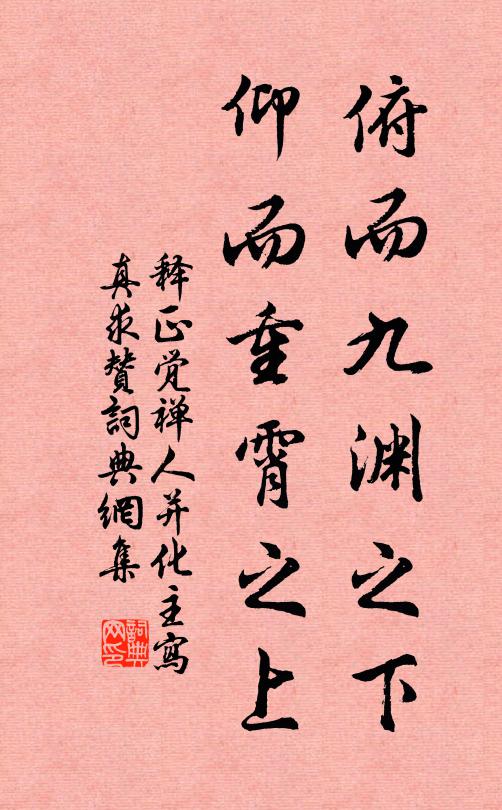 俯而九渊之下
仰而重霄之上
释正觉禅人并化主寫
真求赞詞典網集
詞典网印